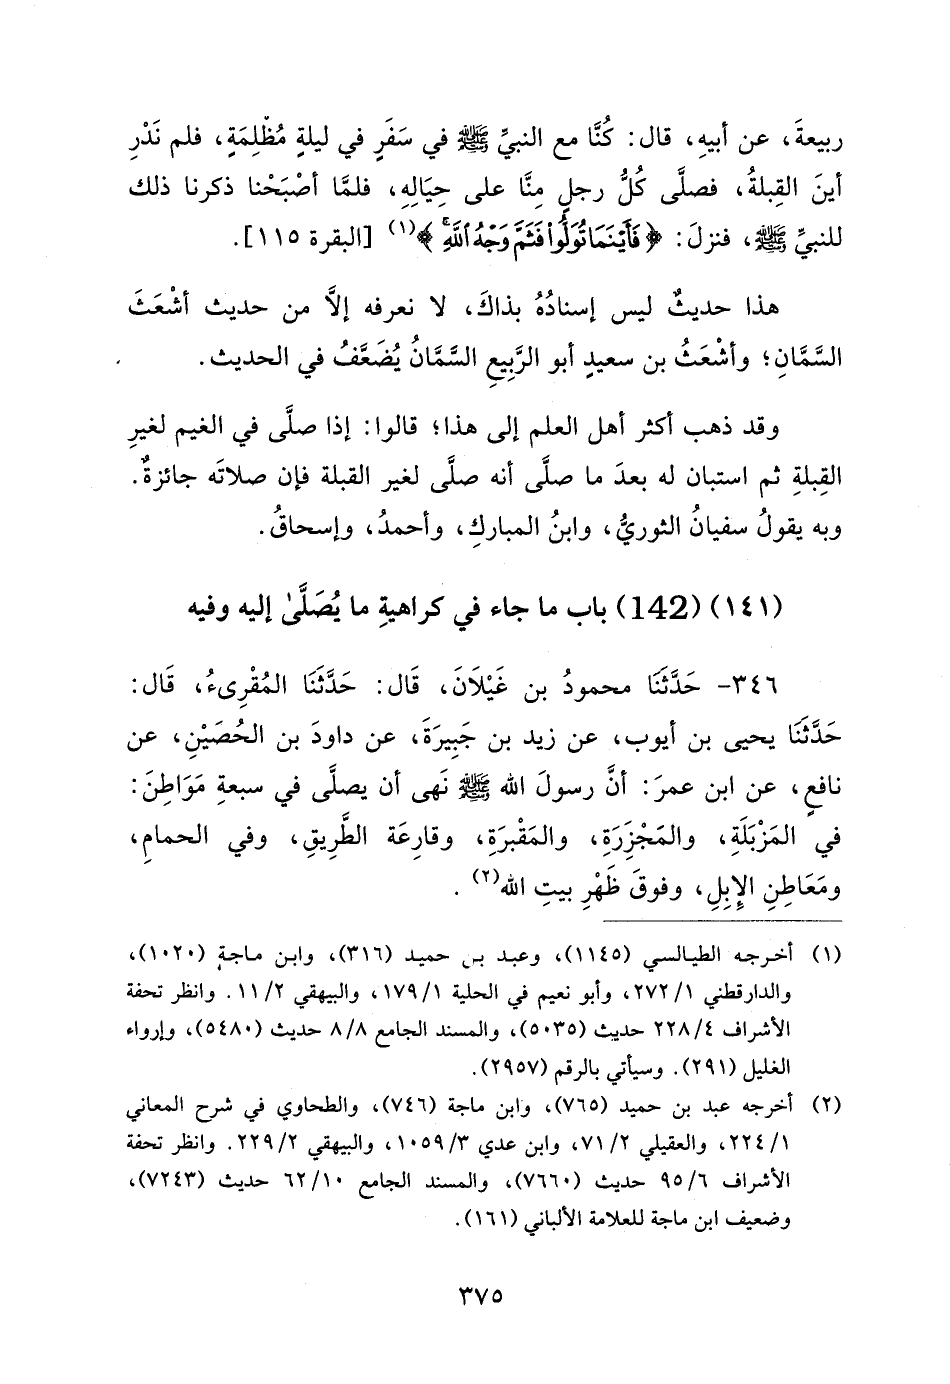 ربيعةَ، عن أبيهِ، قال: كُنَّا مع النبيِّ ﷺ في سَفَرٍ في ليلةٍ مُظْلِمَةٍ، فلم نَدْرِ
أينَ القِبلةُ، فصلَّى كُلُّ رجلٍ مِنَّا على حِيَالِهِ، فلمَّا أصْبَحْنا ذكرنا ذلك
للنبيِّ ﷺ، فنزلَ: ﴿فَأَيْنَمَا تُوَلُّوا۟ فَثَمَّ وَجْهُ ٱللَّهِۚ﴾(١) [البقرة ١١٥].
هذا حديثٌ ليس إسنادُهُ بذاكَ، لا نعرفه إلاَّ من حديث أشْعَثَ
السَّمَّانِ؛ وأشْعَثُ بن سعيدٍ أبو الرَّبِيعِ السَّمَّانُ يُضَعَّفُ في الحديث.
وقد ذهب أكثر أهل العلم إلى هذا؛ قالوا: إذا صلَّى في الغيم لغيرِ
القِبلةِ ثم استبان له بعدَ ما صلَّى أنه صلَّى لغير القبلة فإن صلاتَه جائزةٌ.
وبه يقولُ سفيانُ الثوريُّ، وابنُ المباركِ، وأحمدُ، وإسحاقُ.
(١٤١) (142) باب ما جاء في كراهيةِ ما يُصَلَّىٰ إليه وفيه
٣٤٦- حَدَّثَنَا محمودُ بن غَيْلَانَ، قَال: حَدَّثَنَا المُقْرِىءُ، قَال:
حَدَّثَنَا يحيى بن أيوب، عن زيد بن جَبِيرَةَ، عن داودَ بن الحُصَيْنِ، عن
نافعٍ، عن ابن عمرَ: أنَّ رسولَ الله ﷺ نَهى أن يصلَّى في سبعةِ مَوَاطِنَ:
في المَزْبَلَةِ، والمَجْزِرَةِ، والمَقْبَرَةِ، وقارِعَة الطَّريقِ، وفي الحمامِ،
ومَعَاطِنِ الإِبِلِ، وفوقَ ظَهْرِ بيتِ الله(٢).
(١) أخرجه الطيالسي (١١٤٥)، وعبد بن حميد (٣١٦)، وابن ماجة (١٠٢٠)،
والدارقطني ١/ ٢٧٢، وأبو نعيم في الحلية ١/ ١٧٩، والبيهقي ٢/ ١١. وانظر تحفة
الأشراف ٤/ ٢٢٨ حديث (٥٠٣٥)، والمسند الجامع ٨/ ٨ حديث (٥٤٨٠)، وإرواء
الغليل (٢٩١). وسيأتي بالرقم (٢٩٥٧).
(٢) أخرجه عبد بن حميد (٧٦٥)، وابن ماجة (٧٤٦)، والطحاوي في شرح المعاني
١/ ٢٢٤، والعقيلي ٢/ ٧١، وابن عدي ٣/ ١٠٥٩، والبيهقي ٢/ ٢٢٩. وانظر تحفة
الأشراف ٦/ ٩٥ حديث (٧٦٦٠)، والمسند الجامع ١٠/ ٦٢ حديث (٧٢٤٣)،
وضعيف ابن ماجة للعلامة الألباني (١٦١).
٣٧٥